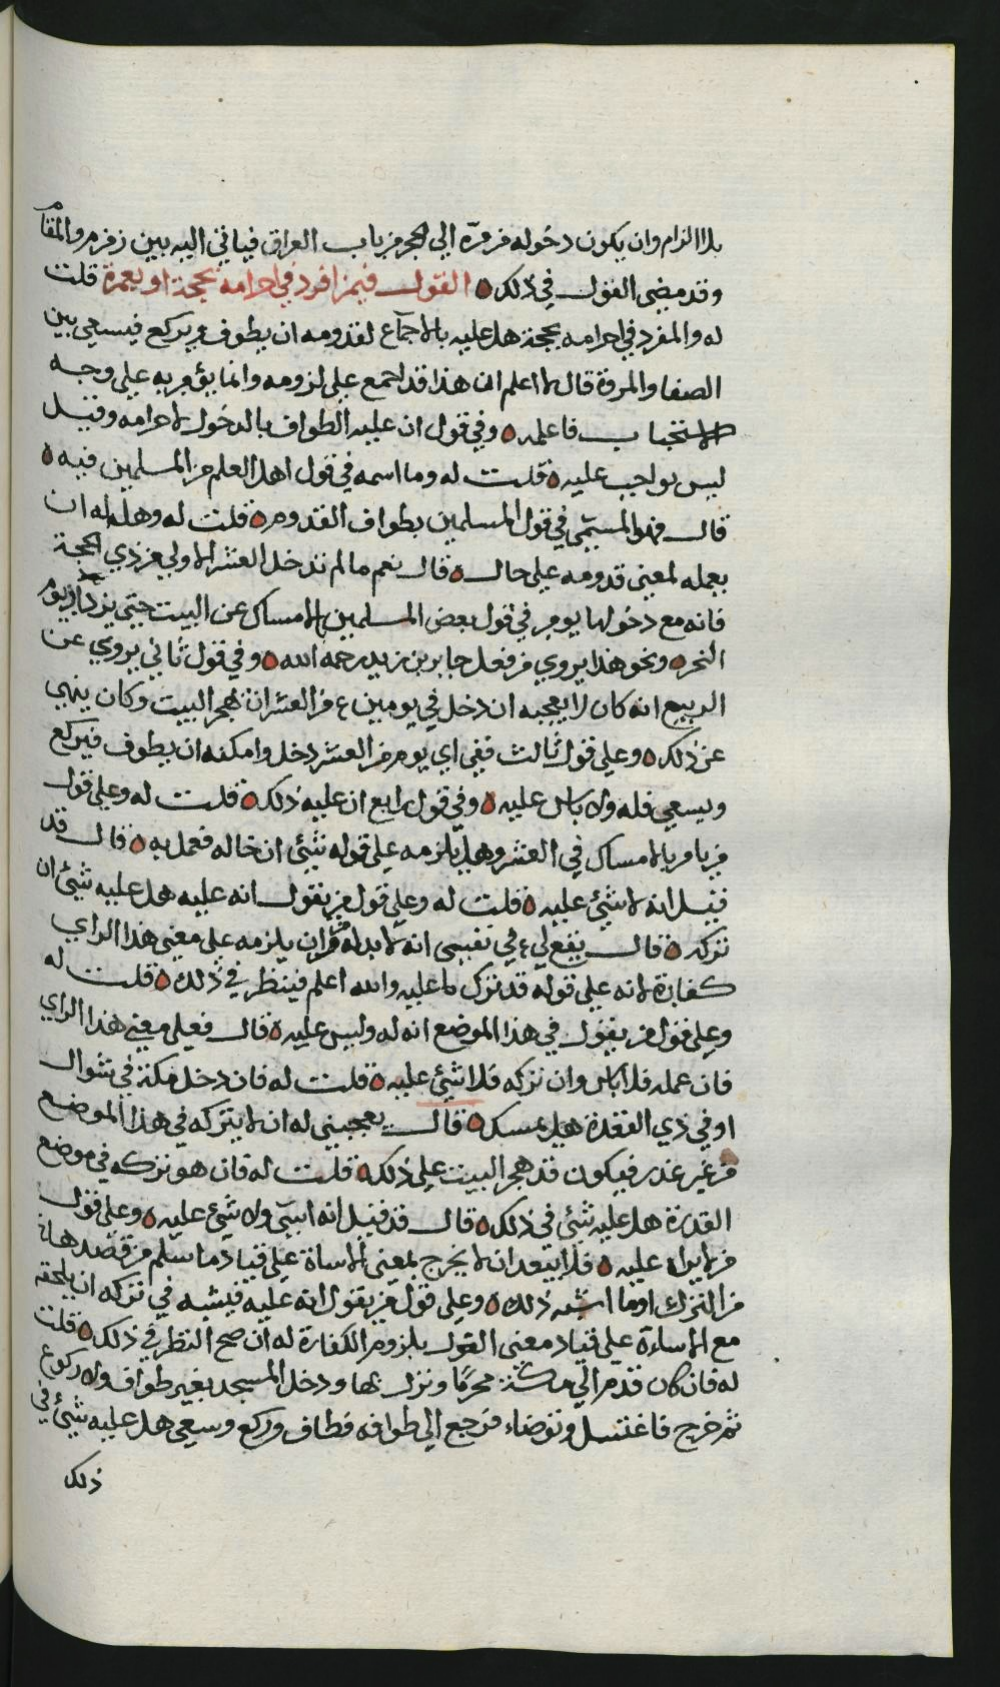 بلا الزام وان يكون دخوله من مرة الي الحجر من باب العراق فياتي اليه بين زمزم والمقام
وقد مضي القول في ذلك ه القول فيمن افرد في احرامه بحجة او بعمرة قلت
له والمفرد في احرامه بحجة هل عليه بالاجماع لقدومه ان يطوف ويركع فيسعي بين
الصفا والمروة قال لا اعلم ان هذا قد اجمع علي لزومه وانما يؤمر به علي وجه
الاستحباب فاعلمه ه وفي قول ان عليه الطواف بالدخول لاحرامه وقيل
ليس بواجب عليه ه قلت له وما اسمه في قول اهل العلم من المسلمين فيه ه
قال فهو المسمّي في قول المسلمين بطواف القدوم ه قلت له وهل له ان
يعمله لمعني قدومه علي حال ه قال نعم ما لم تدخل العشر الاولي من ذي الحجة
فانه مع دخولها يومر في قول بعض المسلمين بالامساك عن البيت حتي يزداد يوم
النحر ه ونحو هذا يروي من فعل جابر بن زيد رحمه الله ه وفي قول ثاني يروي عن
الربيع انه كان لا يعجبه ان دخل في يومين من العشر ان يهجر البيت وكان ينهي
عن ذلك ه وعلي قول ثالث ففي اي يوم من العشر دخل وامكنه ان يطوف فيركع
ويسعي فله ولا باس عليه ه وفي قول رابع ان عليه ذلك ه قلت له وعلي قول
من يامر بالامساك في العشر وهل يلزمه علي قوله شئ ان خاله فعمل به ه قال قد
قيل انه لا شئ عليه ه قلت له وعلي قول من يقول انه عليه هل عليه شئ ان
تركه ه قال يقع لي في نفسي انه لابد له من ان يلزمه علي معني هذا الراي
كفارة لانه علي قوله قد ترك ما عليه والله اعلم فينظر في ذلك ه قلت له
وعلي قول من يقول في هذا الموضع انه له وليس عليه ه قال فعلي معني هذا الراي
فان عمله فلا باس وان تركه فلا شئ عليه ه قلت له فان دخل مكة في شوال
او في ذي القعدة هل يمسك ه قال يعجبني له ان لا يتركه في هذا الموضع
من غير عذر فيكون قد هجر البيت علي ذلك ه قلت له فان هو تركه في موضع
القدرة هل عليه شئ في ذلك ه قال قد قيل انه اسيّ ولا شئ عليه ه وعلي قول
من لا يراه عليه ه فلا يبعد ان لا يخرج بمعني الاساة علي قياد ما سلم من قصد هان
من الترك او ما اشبه ذلك ه وعلي قول من يقول انه عليه فيشبه في تركه ان يلحقه
مع الاساءة علي قياد معني القول بلزوم الكفارة له ان صح النظر في ذلك ه قلت
له فان كان قدم الي مكة محرمًا ونزل بها ودخل المسجد بغير طواف ولا ركوع
ثم خرج فاغتسل وتوضاء فرجع الي طوافه فطاف وركع وسعي هل عليه شئ في
ذلك